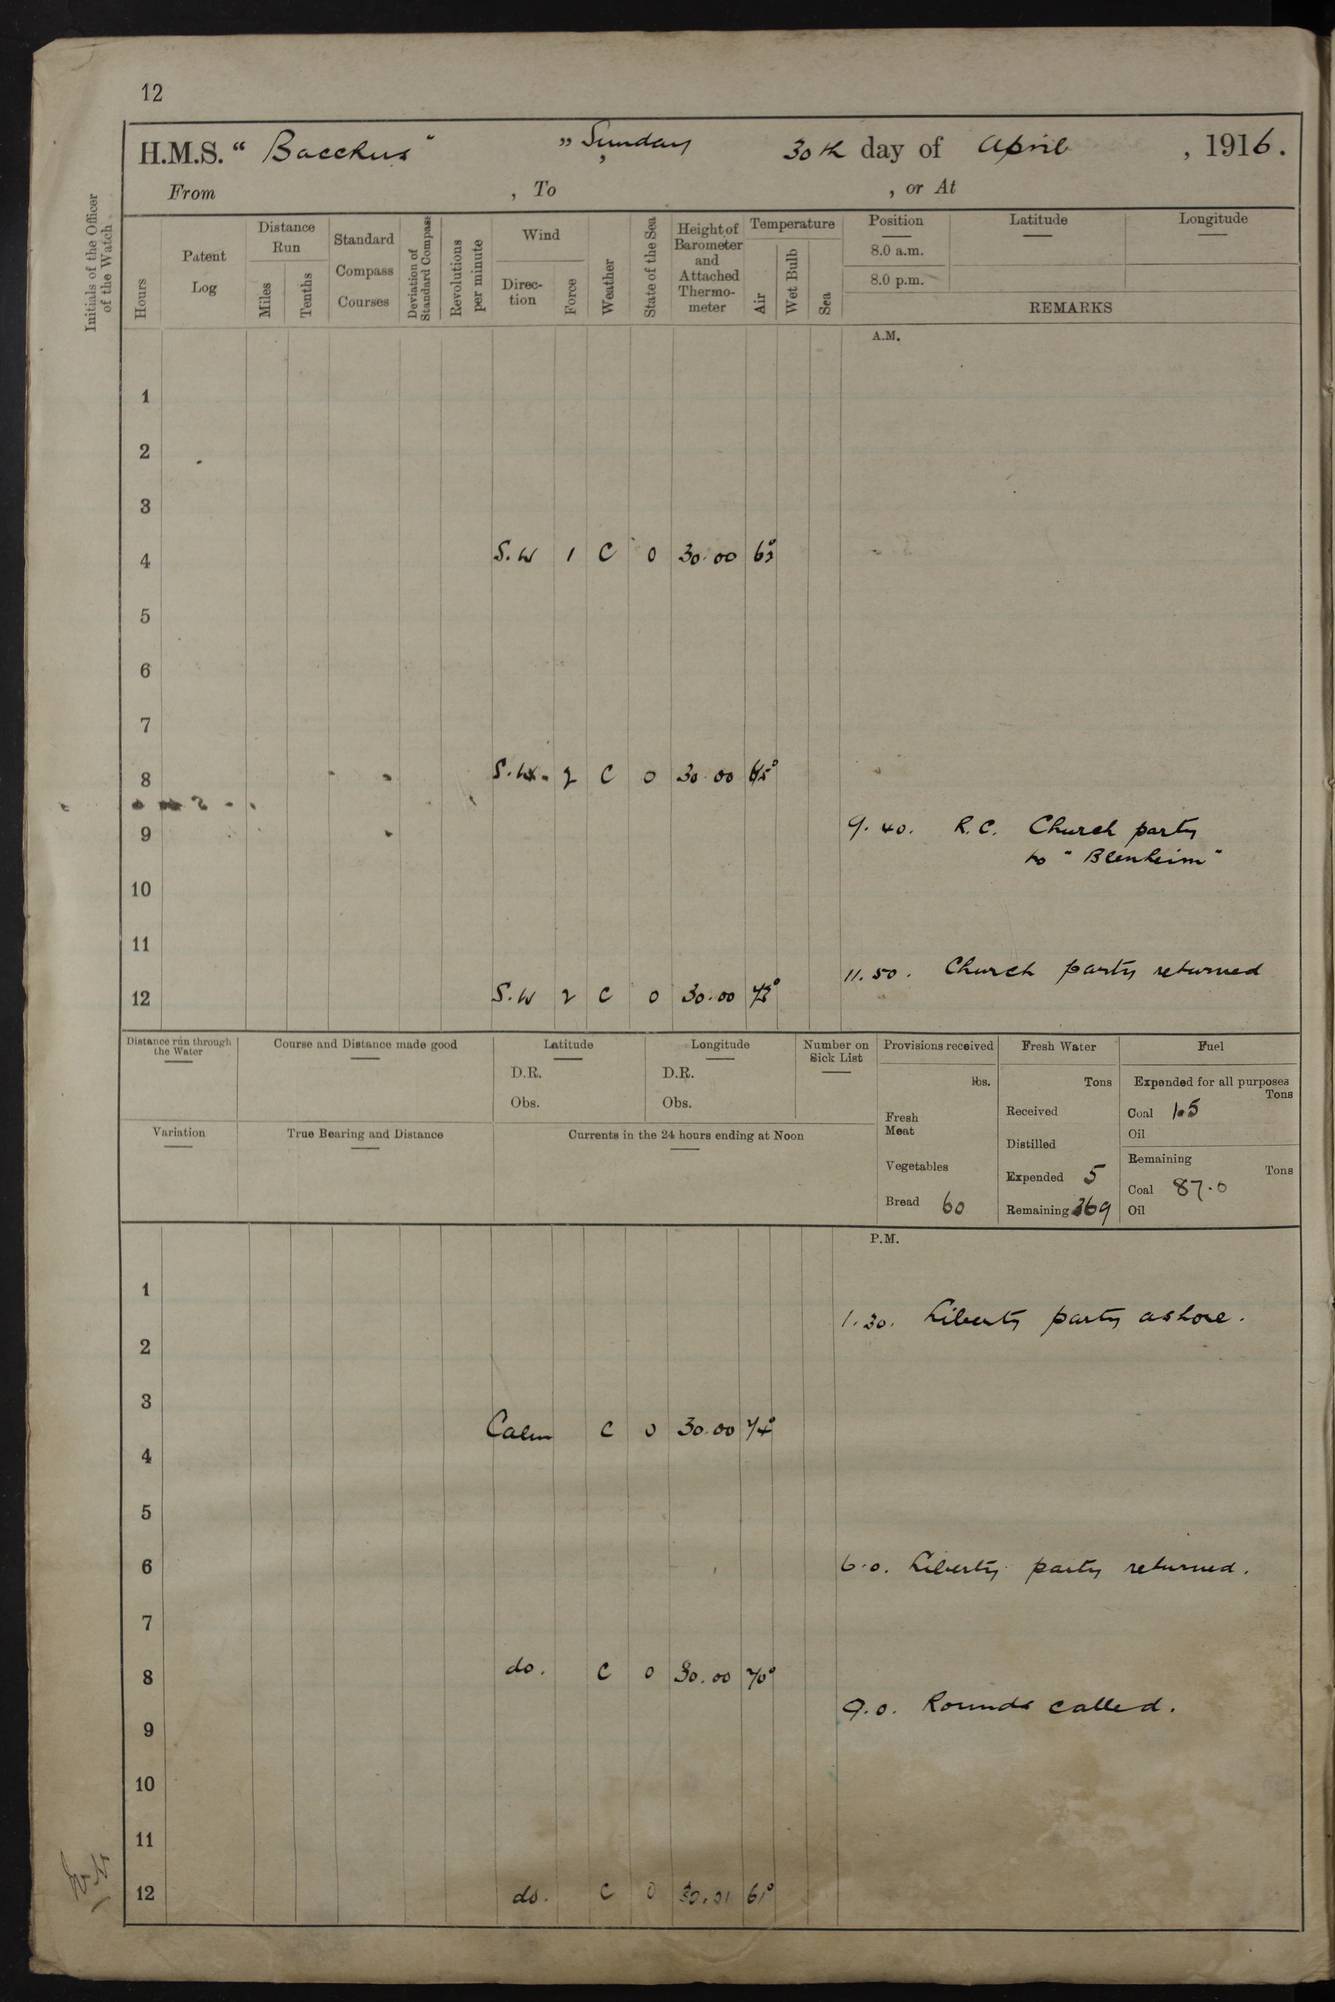 12
H.M.S. “ Bacchus ” „ Sunday, 30th day of April , 1916.
From , To , or At
Initials of the Officer of the Watch
Hours
Patent Log
Distance Run
Miles
Tenths
Standard Compass Courses
Deviation of Standard Compass
Revolutions per minute
Wind
Direction
Force
Weather
State of the Sea
Height of Barometer and Attached Thermometer
Temperature
Air
Wet Bulb
Sea
Position Latitude Longitude
8.0 a.m.
8.0 p.m.
REMARKS
A.M.
1
2
3
4 S.W 1 C 0 30.00 63°
5
6
7
8 S.W. 2 C 0 30.00 65°
9 9.40. R.C. Church party
to “ Blenheim ”
10
11
11.50. Church party returned
12 S.W 2 C 0 30.00 73°
Distance run through the Water
Course and Distance made good
Latitude
D.R.
Obs.
Longitude
D.R.
Obs.
Number on Sick List
Variation
True Bearing and Distance
Currents in the 24 hours ending at Noon
Provisions received
lbs.
Fresh Meat
Vegetables
Bread 60
Fresh Water
Tons
Received
Distilled
Expended 5
Remaining 369
Fuel
Expended for all purposes
Tons
Coal 1.5
Oil
Remaining
Tons
Coal 87.0
Oil
P.M.
1
1.30. Liberty party ashore.
2
3
Calm C 0 30.00 74°
4
5
6 6.0. Liberty party returned.
7
8 do. C 0 30.00 70°
9.0. Rounds called.
9
10
11
12 do. C 0 30.01 61°